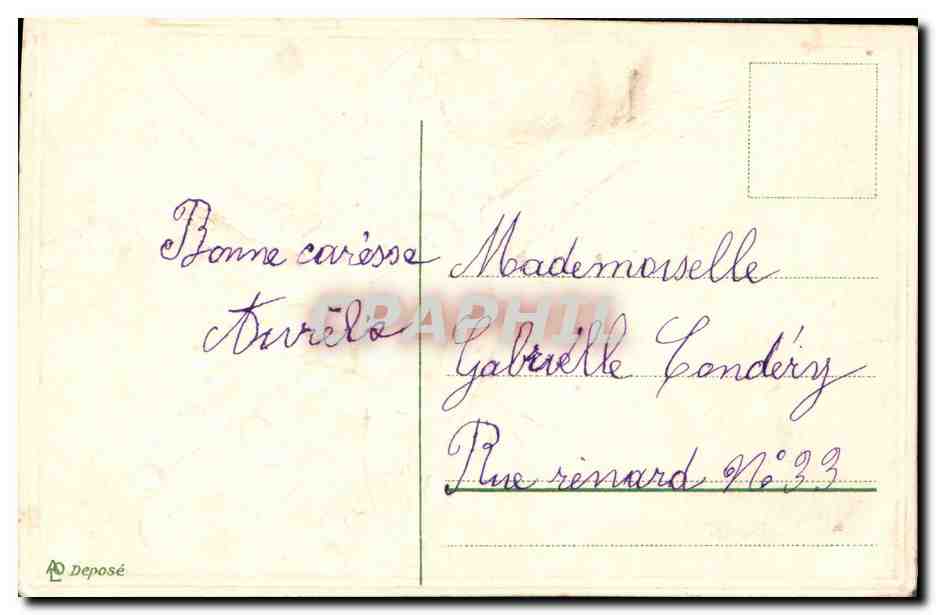 Bonne carèsse
Aurélie
Mademoiselle
Gabrielle Condéry
Rue rénard N° 33
CPAPHIL
ALO Deposé